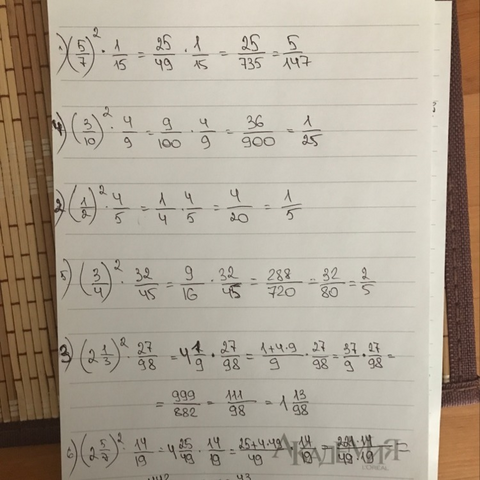 1) (5/7)² · 1/15 = 25/49 · 1/15 = 25/735 = 5/147
4) (3/10)² · 4/9 = 9/100 · 4/9 = 36/900 = 1/25
2) (1/2)² · 4/5 = 1/4 · 4/5 = 4/20 = 1/5
5) (3/4)² · 32/45 = 9/16 · 32/45 = 288/720 = 32/80 = 2/5
3) (2 1/3)² · 27/98 = 4 1/9 · 27/98 = 1+4·9/9 · 27/98 = 37/9 · 27/98 =
= 999/882 = 111/98 = 1 13/98
6) (2 5/7)² · 14/19 = 4 25/49 · 14/19 = 25+4·49/49 · 14/19 = 221/49 · 14/19 =
АКАДЕМИЯ